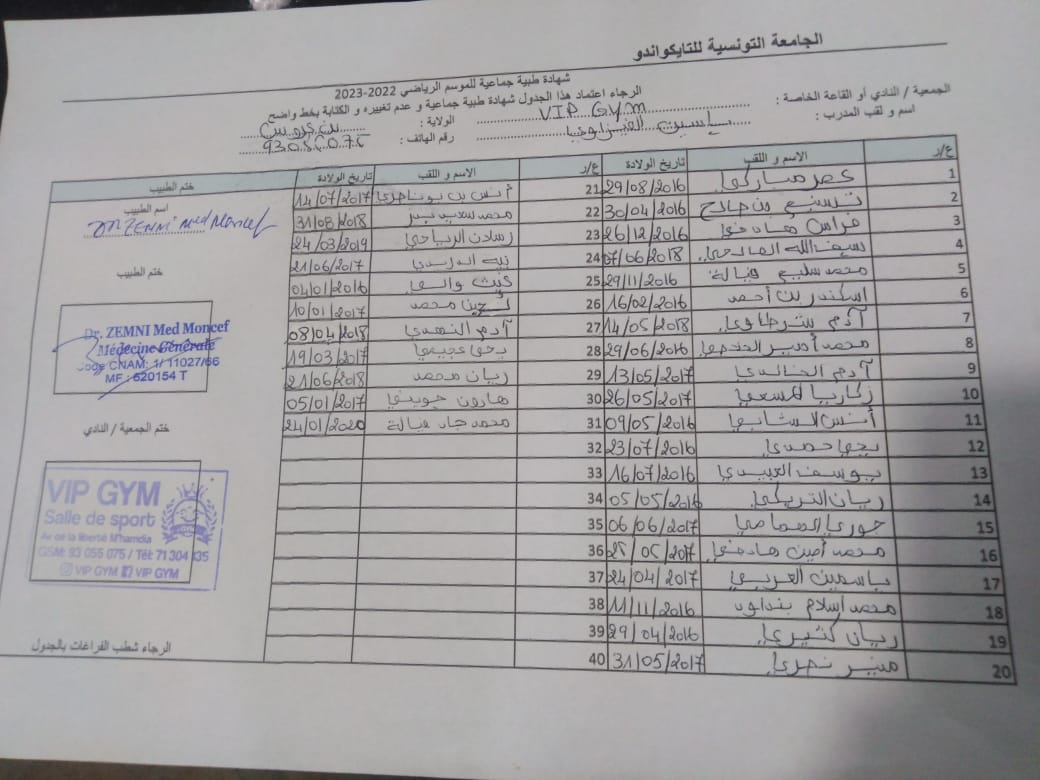 الجامعة التونسية للتايكواندو
شهادة طبية جماعية للموسم الرياضي 2022-2023
الرجاء اعتماد هذا الجدول شهادة طبية جماعية و عدم تغييره و الكتابة بخط واضح
الجمعية / النادي أو القاعة الخاصة : VIP GYM الولاية : بن عروس
اسم و لقب المدرب : ياسين رقم الهاتف :
ع/ر الاسم و اللقب تاريخ الولادة ع/ر الاسم و اللقب تاريخ الولادة ختم الطبيب
1 عمر مباركي 29/08/2016 21 أنس بن 14/07/2017
2 تسنيم بن صالح 30/04/2016 22 محمد 31/08/2018
3 فراس هادفي 26/12/2016 23 رسلان الرياحي 24/03/2019
4 سيف الله الصالحي 07/06/2018 24 21/06/2017
5 محمد سليم ميالة 29/11/2016 25 04/01/2016
6 اسكندر بن أحمد 16/02/2016 26 لجين محمد 10/01/2017
7 آدم شرطاوي 14/05/2018 27 آدم النهدي 08/04/2018
8 محمد أمير 29/06/2016 28 يحي عجيمي 19/03/2017
9 آدم الخالدي 13/05/2017 29 ريان محمد 21/06/2018
10 زكاريا 26/05/2017 30 هارون جويني 05/01/2017
11 أنس الشابي 09/05/2016 31 محمد جاد ميالة 24/01/2020
12 يحي حمدي 23/07/2016 32
13 يوسف العبيدي 16/07/2016 33
14 ريان التريكي 05/05/2016 34
15 جوري الصمامي 06/06/2017 35
16 محمد أمين هادفي 25/05/2017 36
17 ياسمين العربي 24/04/2017 37
18 محمد اسلام 11/11/2016 38
19 ريان كثيري 29/04/2016 39
20 منير نصري 31/05/2017 40
اسم الطبيب
Dr ZEMNI Med Moncef
ختم الطبيب
Dr. ZEMNI Med Moncef
Médecine Générale
Code CNAM: 1/ 11027/66
MF : 620154 T
ختم الجمعية / النادي
VIP GYM
Salle de sport
Av de la liberté M'hamdia
GSM: 93 055 075 / Tél: 71 304 035
VIP GYM VIP GYM
الرجاء شطب الفراغات بالجدول